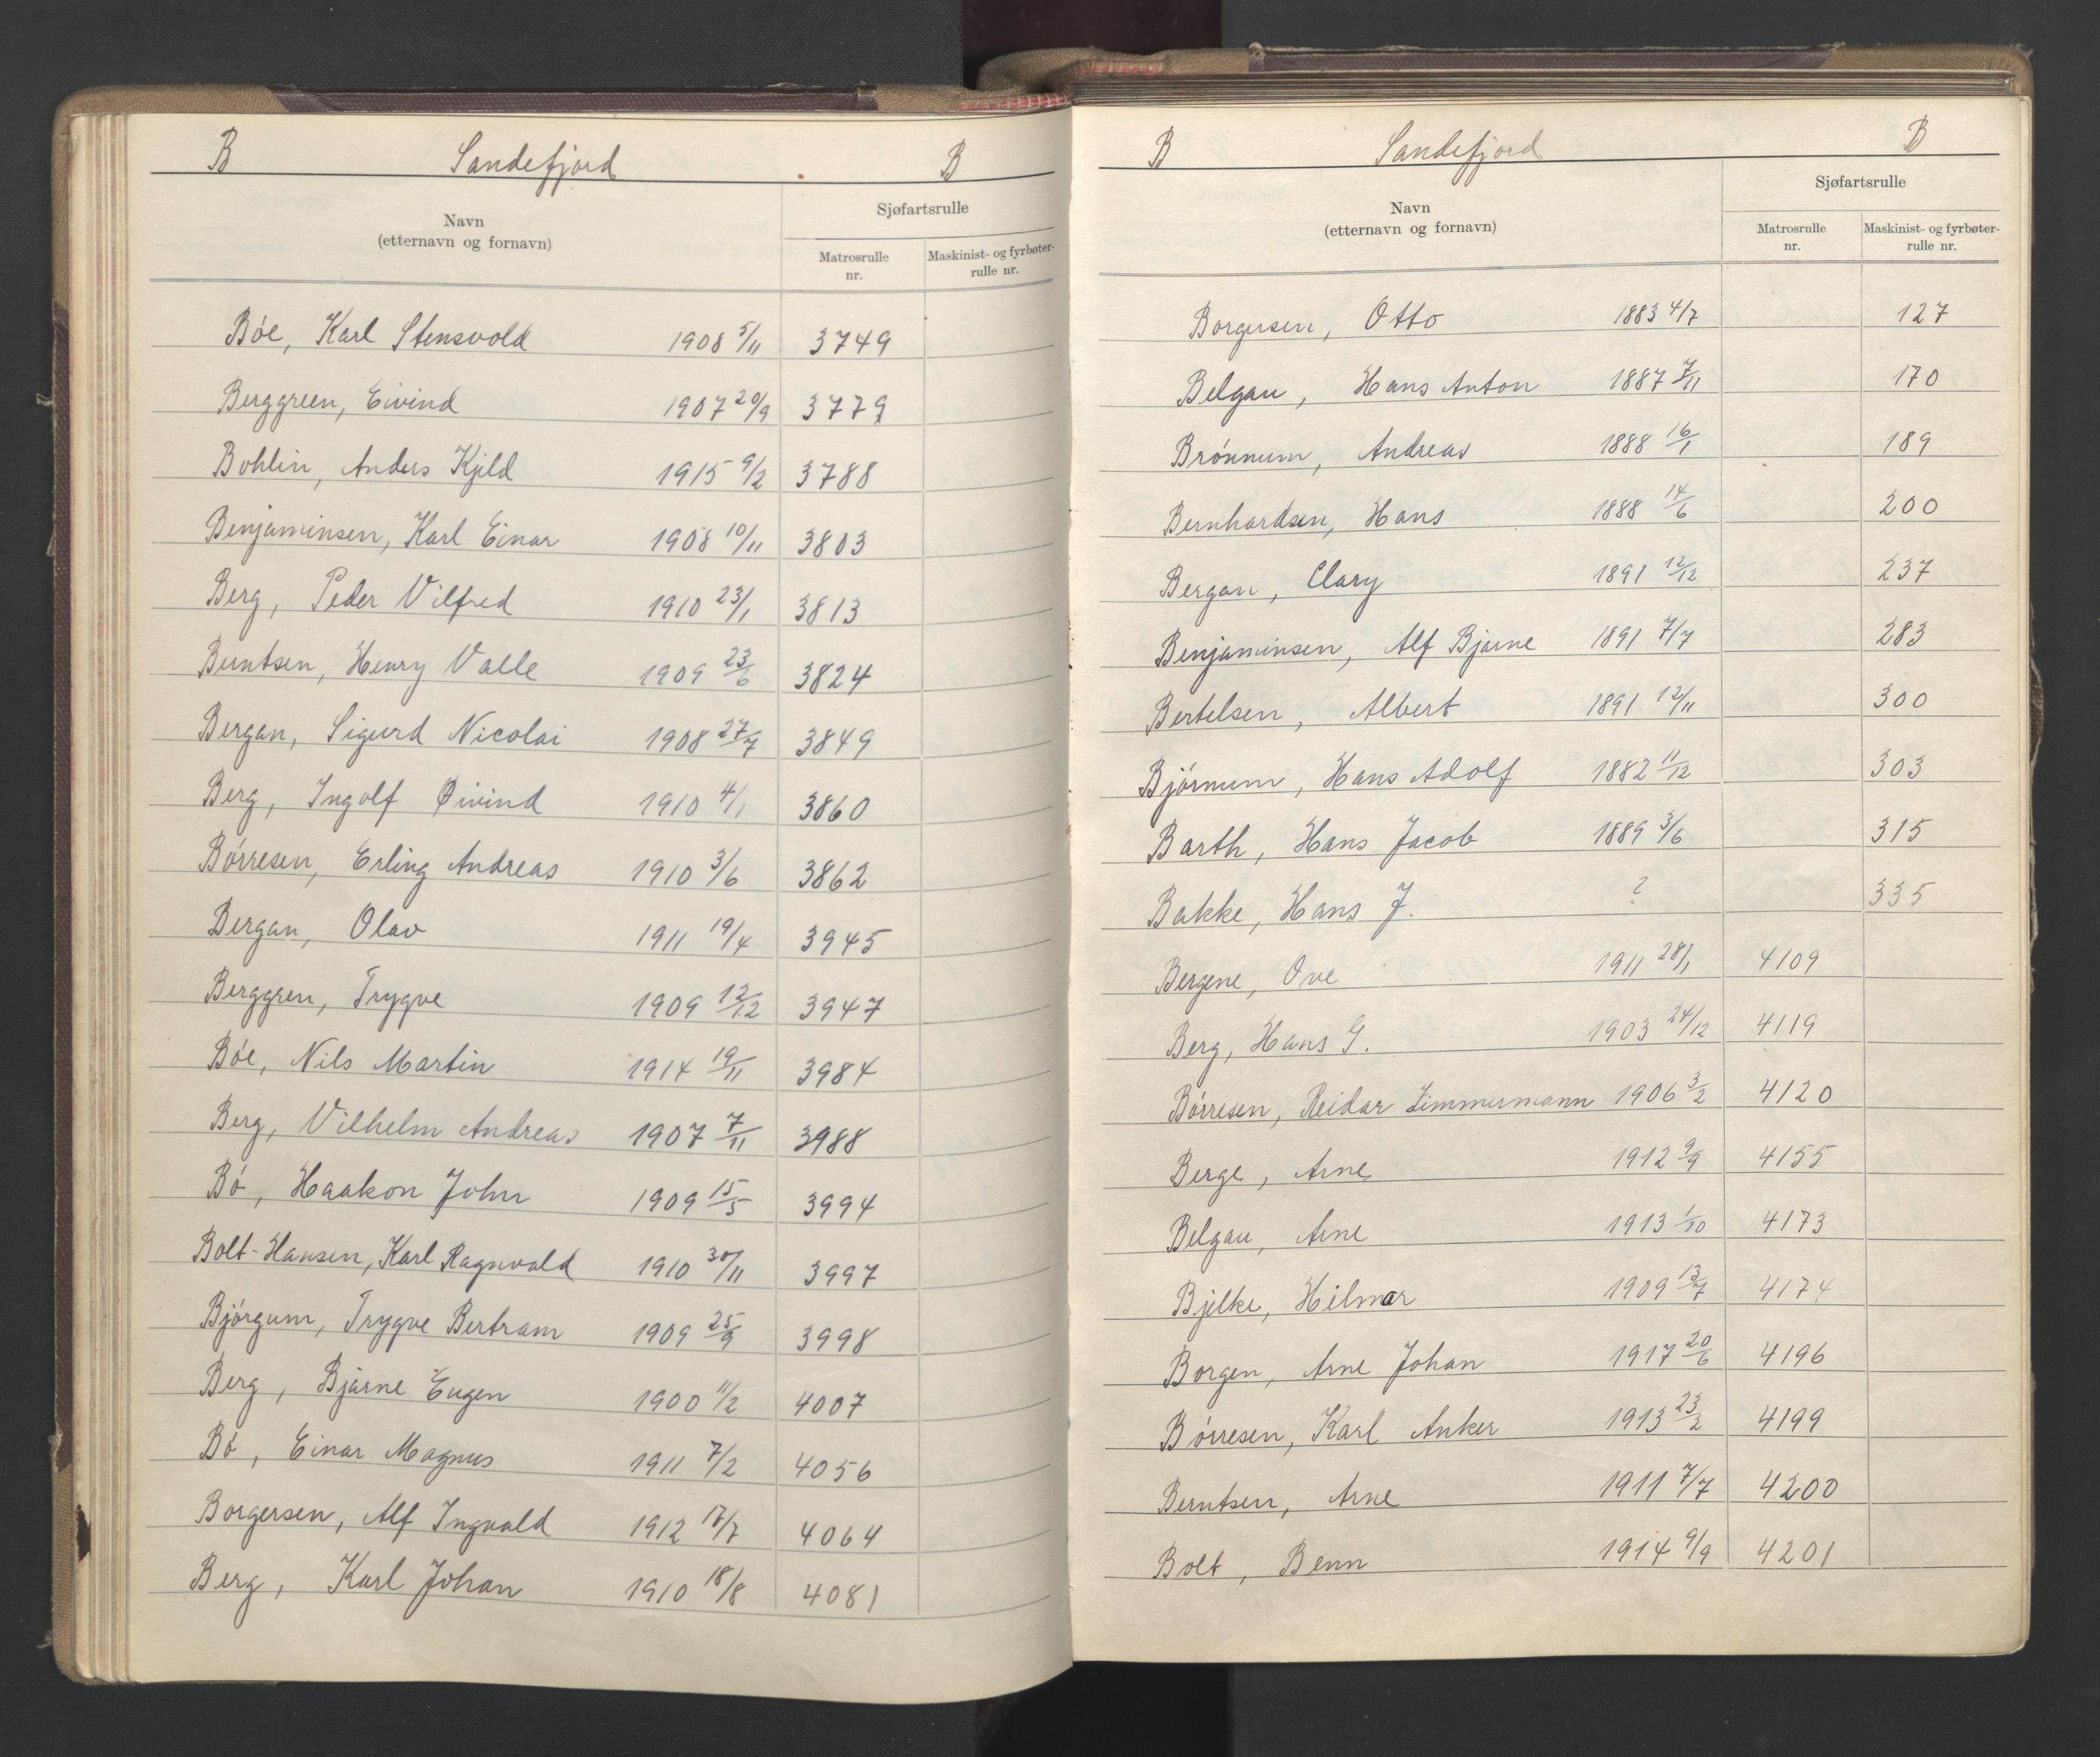 B Sandefjord B
Sjøfartsrulle
Navn
(etternavn og fornavn)
Matrosrulle nr.
Maskinist- og fyrbøter-rulle nr.
Bóe, Karl Stensvold 1908 5/11 3749
Berggreen, Eivind 1907 20/9 3779
Bohlin, Anders Kjeld 1915 9/2 3788
Benjaminsen, Karl Einar 1908 10/11 3803
Berg, Peder Vilfred 1910 23/1 3813
Berntsen, Henry Valle 1909 23/6 3824
Bergan, Sigurd Nicolai 1908 27/7 3849
Berg, Ingolf Øivind 1910 4/1 3860
Bórresen, Erling Andreas 1910 3/6 3862
Bergan, Olav 1911 19/4 3945
Berggren, Trygve 1909 12/12 3947
Bóe, Nils Martin 1914 19/11 3984
Berg, Vilhelm Andreas 1907 7/11 3988
Bó, Haakon John 1909 15/5 3994
Bolt-Hansen, Karl Ragnvald 1910 30/11 3997
Bjórgum, Trygve Bertram 1909 25/9 3998
Berg, Bjarne Eugen 1900 11/2 4007
Bó, Einar Magnus 1911 7/2 4056
Borgersen, Alf Ingvald 1912 17/7 4064
Berg, Karl Johan 1910 18/8 4081
B Sandefjord B
Sjøfartsrulle
Navn
(etternavn og fornavn)
Matrosrulle nr.
Maskinist- og fyrbøter-rulle nr.
Borgersen, Otto 1883 4/7 127
Belgau, Hans Anton 1887 7/11 170
Brónnum, Andreas 1888 16/1 189
Bernhardsen, Hans 1888 14/6 200
Bergan, Clary 1891 12/12 237
Benjaminsen, Alf Bjarne 1891 7/7 283
Bertelsen, Albert 1891 12/11 300
Bjórnum, Hans Adolf 1882 11/12 303
Barth, Hans Jacob 1889 3/6 315
Bakke, Hans J. ? 335
Bergene, Ove 1911 28/1 4109
Berg, Hans G. 1903 24/12 4119
Bórresen, Reidar Zimmermann 1906 3/2 4120
Berge, Arne 1912 9/9 4155
Belgau, Arne 1913 1/10 4173
Bjelke, Hilmar 1909 13/7 4174
Borgen, Arne Johan 1917 20/6 4196
Bórresen, Karl Anker 1913 23/2 4199
Berntsen, Arne 1911 7/7 4200
Bolt, Benn 1914 9/9 4201